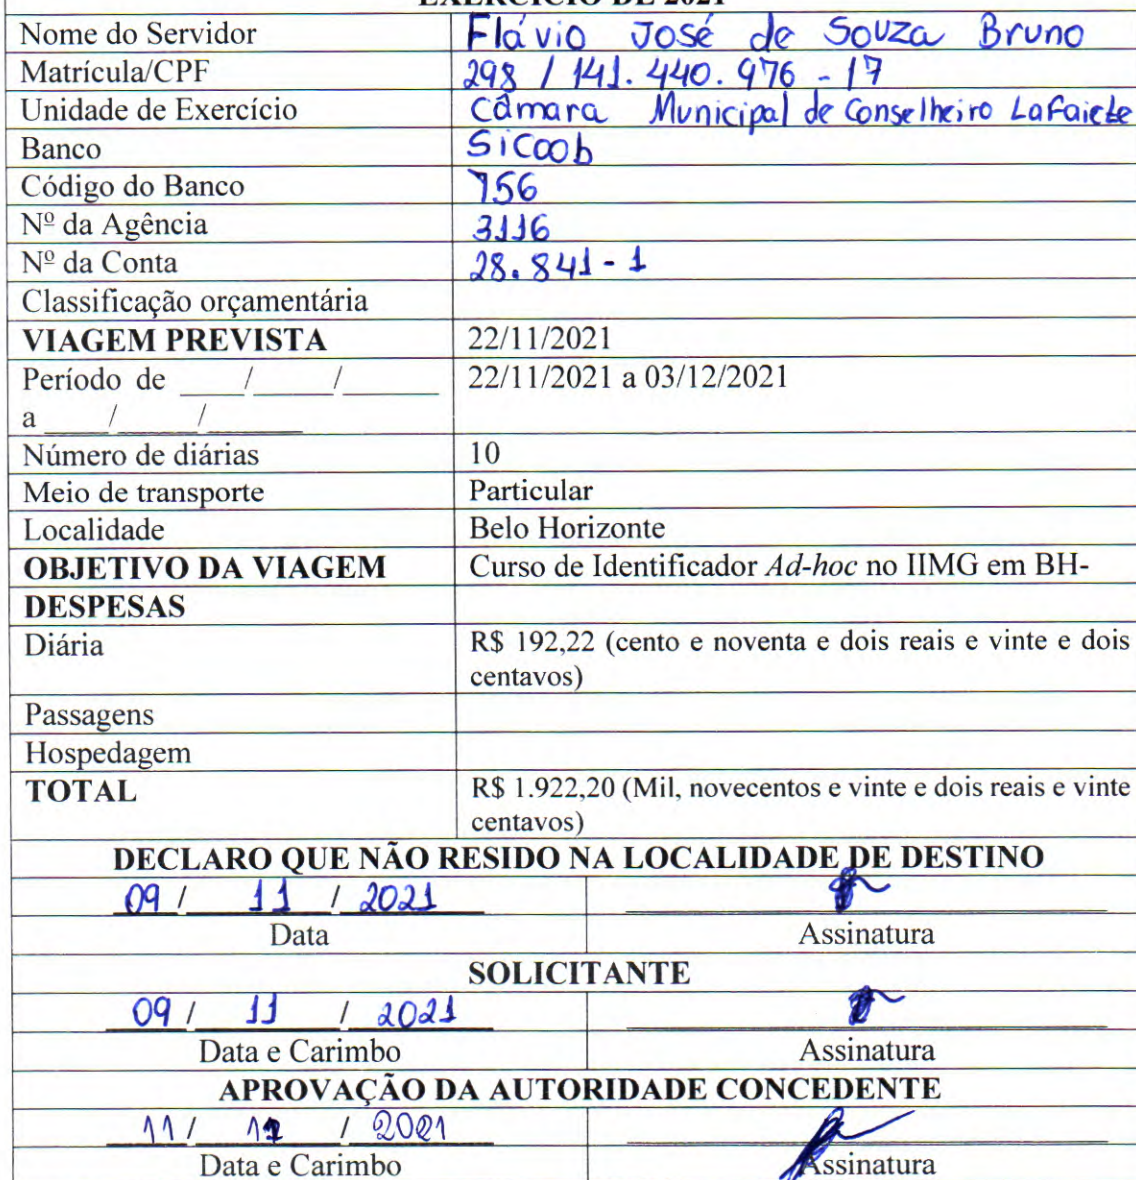 EXERCÍCIO DE 2021
Nome do Servidor Flávio José de Souza Bruno
Matrícula/CPF 298 / 141.440.976-17
Unidade de Exercício Câmara Municipal de Conselheiro Lafaiete
Banco Sicoob
Código do Banco 756
Nº da Agência 3116
Nº da Conta 28.841-1
Classificação orçamentária
VIAGEM PREVISTA 22/11/2021
Período de ____/_____/______ 22/11/2021 a 03/12/2021
a ____/_____/______
Número de diárias 10
Meio de transporte Particular
Localidade Belo Horizonte
OBJETIVO DA VIAGEM Curso de Identificador Ad-hoc no IIMG em BH-
DESPESAS
Diária R$ 192,22 (cento e noventa e dois reais e vinte e dois
centavos)
Passagens
Hospedagem
TOTAL R$ 1.922,20 (Mil, novecentos e vinte e dois reais e vinte
centavos)
DECLARO QUE NÃO RESIDO NA LOCALIDADE DE DESTINO
09 / 11 / 2021
Data Assinatura
SOLICITANTE
09 / 11 / 2021
Data e Carimbo Assinatura
APROVAÇÃO DA AUTORIDADE CONCEDENTE
11 / / 2021
Data e Carimbo Assinatura